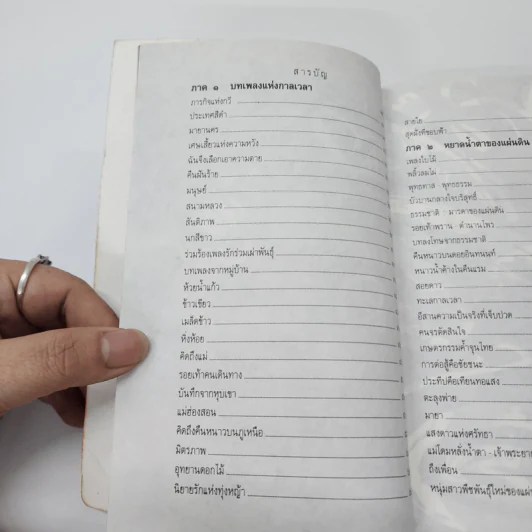 สารบัญ
ภาค ๑ บทเพลงแห่งกาลเวลา
ภารกิจแห่งกวี
ประเทศสีดำ
มายานคร
เศษเสี้ยวแห่งความหวัง
ฉันจึงเลือกเอาความตาย
คืนฝันร้าย
มนุษย์
สนามหลวง
สันติภาพ
นกสีขาว
ร่วมร้องเพลงรักร่วมเผ่าพันธุ์
บทเพลงจากหมู่บ้าน
ห้วยน้ำแก้ว
ข้าวเขียว
เมล็ดข้าว
หิ่งห้อย
คิดถึงแม่
รอยเท้าคนเดินทาง
บันทึกจากหุบเขา
แม่ฮ่องสอน
คิดถึงคืนหนาวบนภูเหนือ
มิตรภาพ
อุทยานดอกไม้
นิยายรักแห่งทุ่งหญ้า
สายใย
สุดฝั่งที่ขอบฟ้า
ภาค ๒ หยาดน้ำตาของแผ่นดิน
เพลงใบไม้
พลิ้วลมไผ่
พุทธทาส - พุทธธรรม
บัวบานกลางใจบริสุทธิ์
ธรรมชาติ - มารดาของแผ่นดิน
รอยเท้าพราน - ตำนานไพร
บทลงโทษจากธรรมชาติ
คืนหนาวบนดอยอินทนนท์
หนาวน้ำค้างในคืนแรม
สอยดาว
ทะเลกาลเวลา
อีสานความเป็นจริงที่เจ็บปวด
คนจรตัดสินใจ
เกษตรกรรมค้ำจุนไทย
การต่อสู้คือชัยชนะ
ประทีปคือเทียนทอแสง
ตะลุงพ่าย
มายา
แสงดาวแห่งศรัทธา
แม่โดมหลั่งน้ำตา - เจ้าพระยา
ถึงเพื่อน
หนุ่มสาวพืชพันธุ์ใหม่ของ